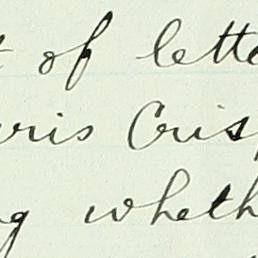 t of lette
ris Cris
g wheth